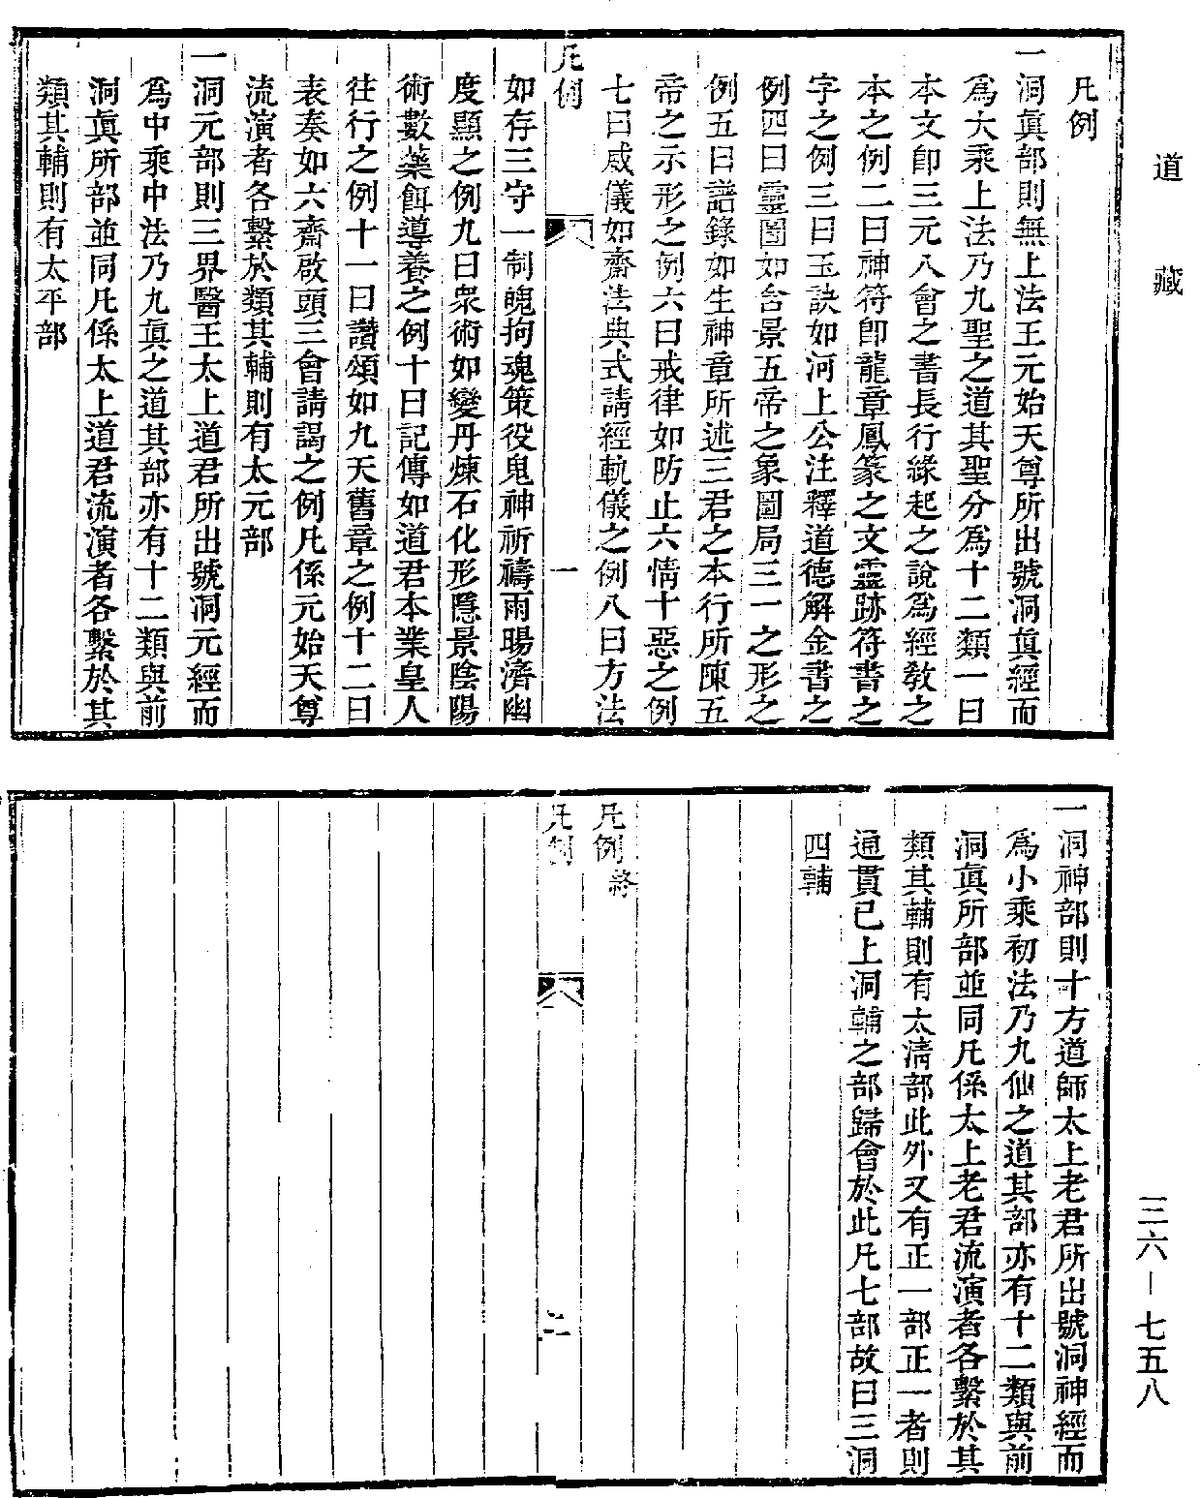 道藏
凡例
一洞眞部則無上法王元始天尊所出號洞眞經而
爲大乘上法乃九聖之道其聖分爲十二類一曰
本文卽三元八會之書長行緣起之說爲經敎之
本之例二曰神符卽龍章鳳篆之文靈跡符書之
字之例三曰玉訣如河上公注釋道德解金書之
例四曰靈圖如含景五帝之象圖局三一之形之
例五曰譜錄如生神章所述三君之本行所陳五
帝之示形之例六曰戒律如防止六情十惡之例
七曰威儀如齋法典式請經軌儀之例八曰方法
凡例 一
如存三守一制魄拘魂策役鬼神祈禱雨暘濟幽
度顯之例九曰衆術如變丹煉石化形隱景陰陽
術數藥餌導養之例十曰記傳如道君本業皇人
往行之例十一曰讚頌如九天舊章之例十二曰
表奏如六齋啟頭三會請謁之例凡係元始天尊
流演者各繫於類其輔則有太元部
一洞元部則三界醫王太上道君所出號洞元經而
爲中乘中法乃九眞之道其部亦有十二類與前
洞眞所部並同凡係太上道君流演者各繫於其
類其輔則有太平部
一洞神部則十方道師太上老君所出號洞神經而
爲小乘初法乃九仙之道其部亦有十二類與前
洞眞所部並同凡係太上老君流演者各繫於其
類其輔則有太淸部此外又有正一部正一者則
通貫已上洞輔之部歸會於此凡七部故曰三洞
四輔
凡例終
凡例 二
三六—七五八